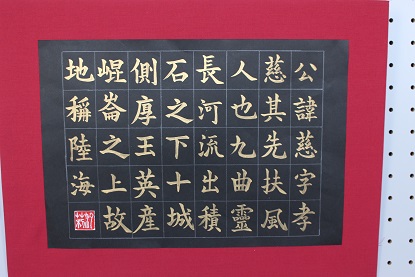 公諱慈字孝
慈其先扶風
人也九曲靈
長河流出積
石之下十城
側厚王英産
崐崙之上故
地稱陸海